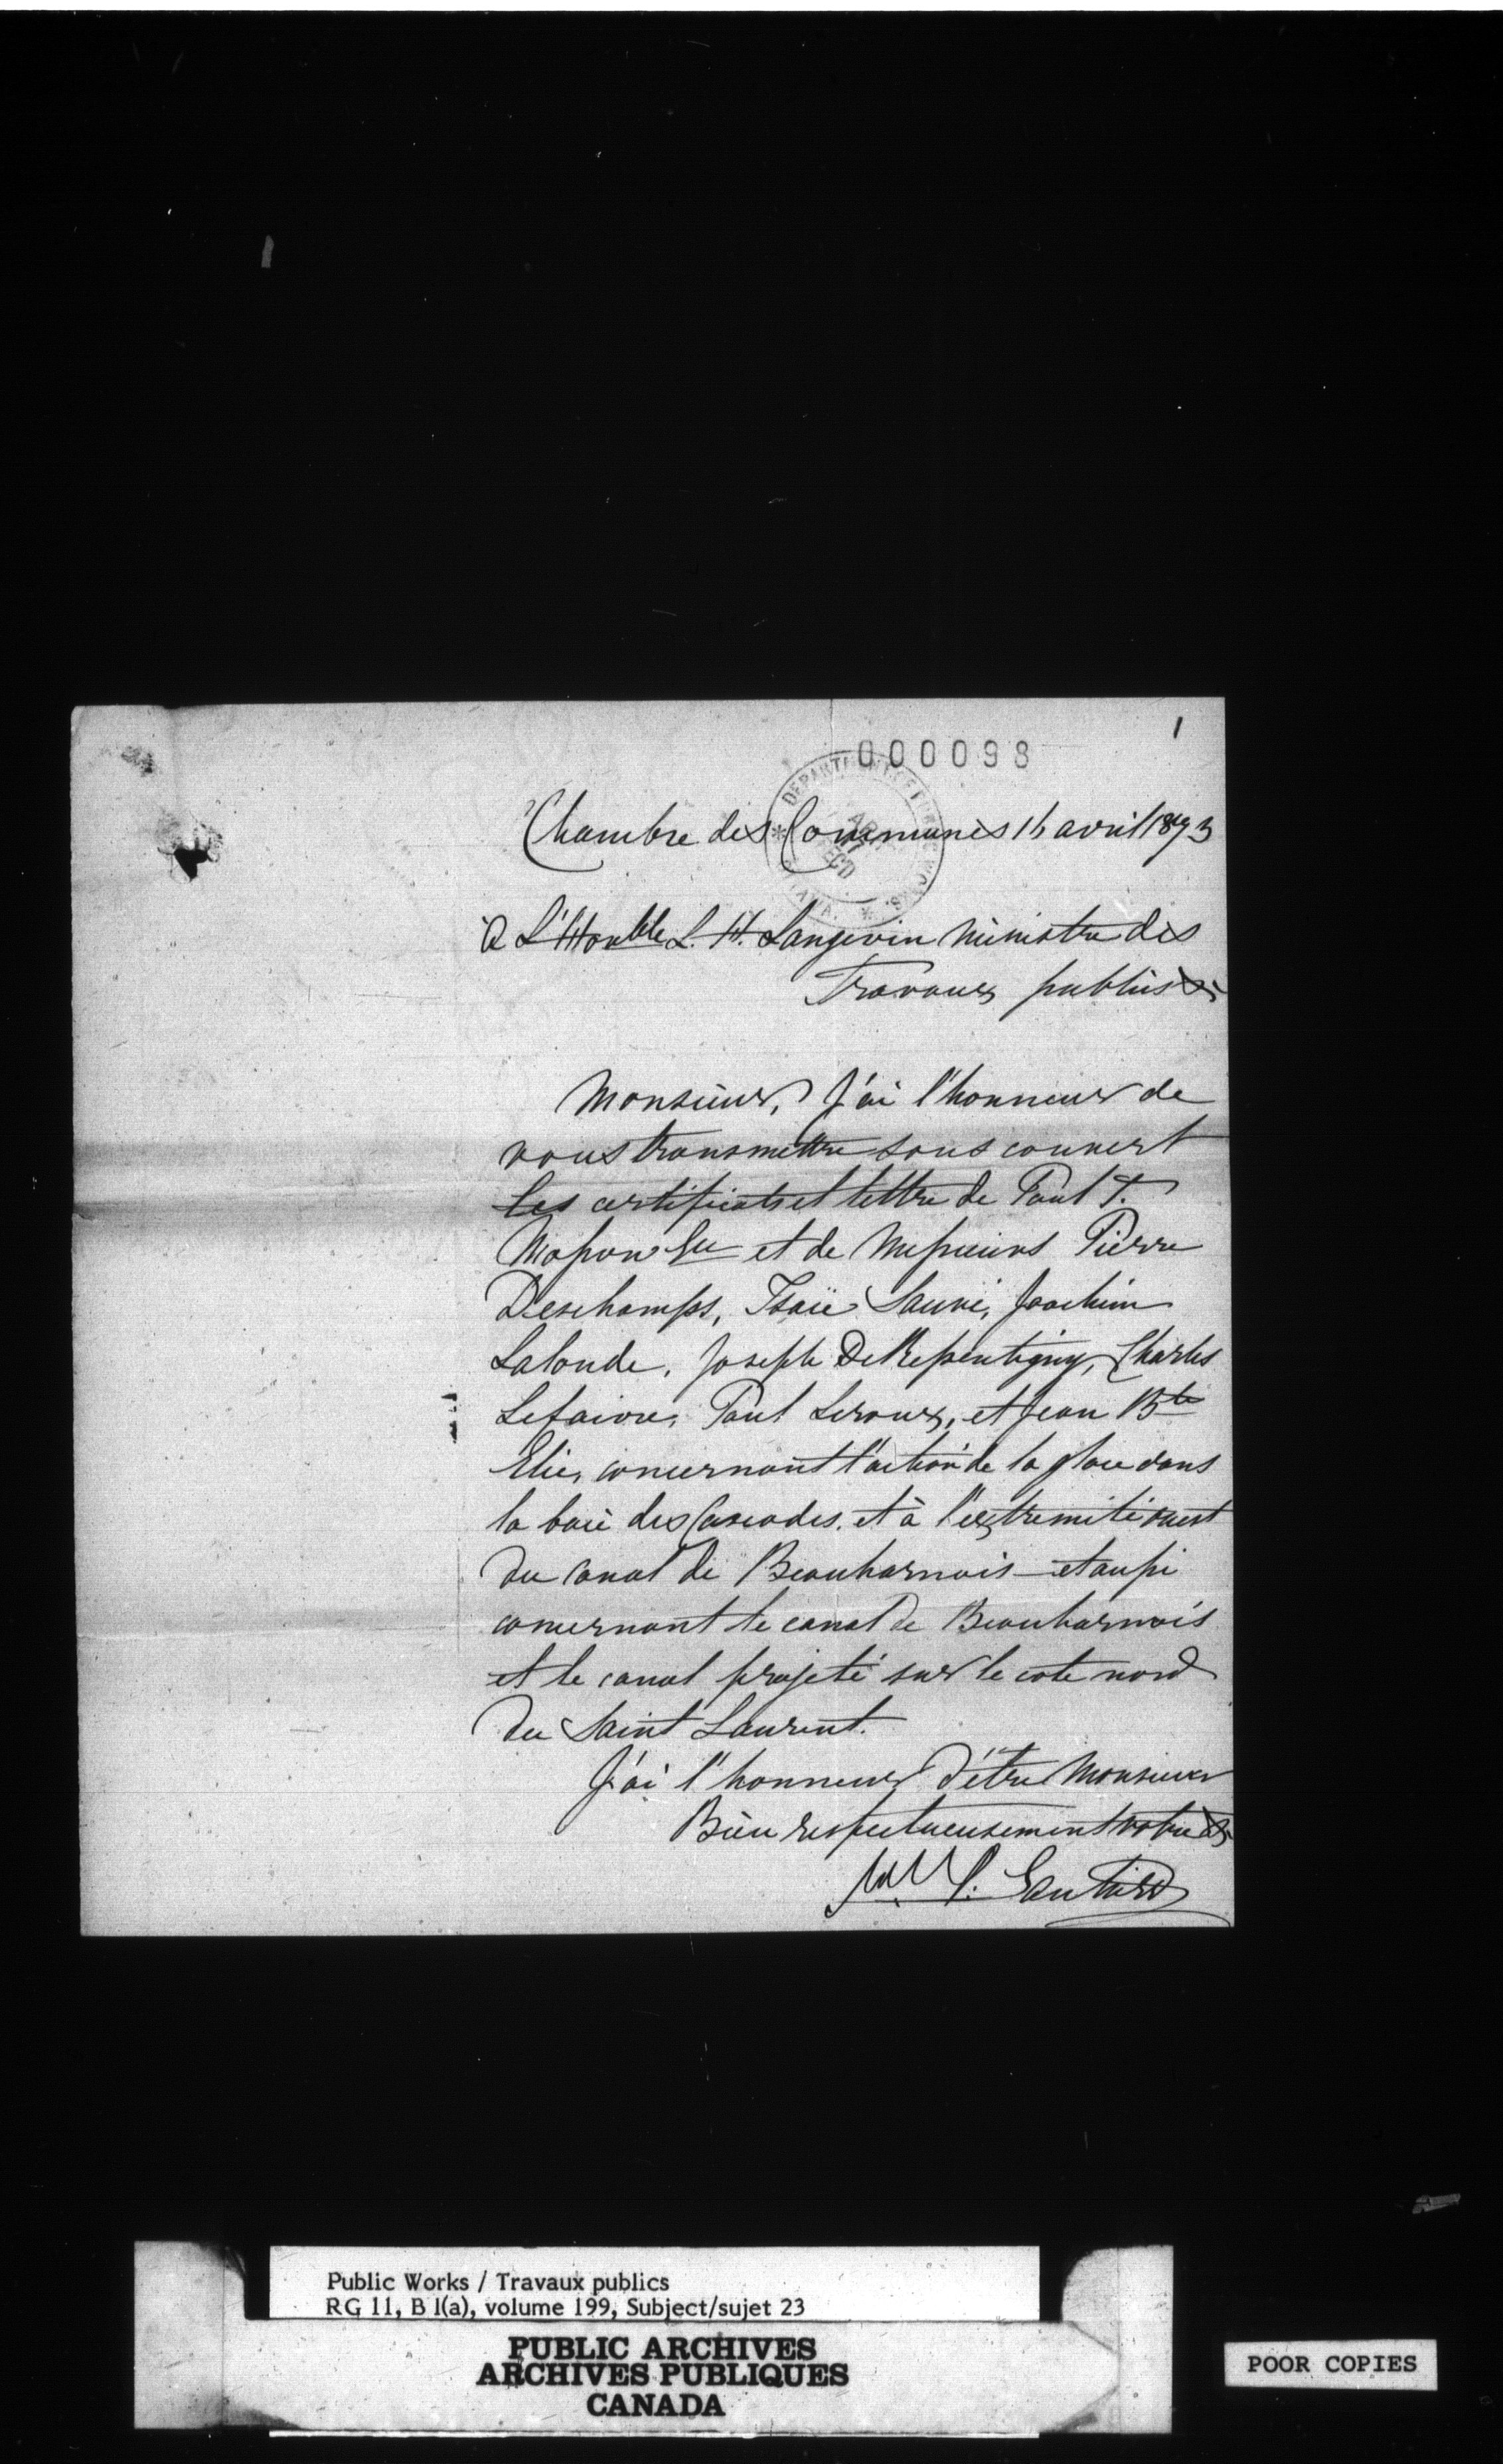 1
000098
DEPARTMENT OF PUBLIC WORKS
OTTAWA
Chambre des Communes 16 avril 1873
à L'Honble L. H. Langevin Ministre des
Travaux publics
Monsieur, J'ai l'honneur de
vous transmettre sous couvert
les certificats et lettre de Paul T.
Masson Eu et de Messieurs Pierre
Deschamps, Isaïe Sauvé, Joachim
Lalonde, Joseph DeRepentigny, Charles
Lefaivre, Paul Leroux, et Jean Bte
Elie, concernant l'action de la glace dans
la baie des Cascades, et à l'extremité ouest
du canal de Beauharnois - et aussi
concernant le canal de Beauharnois
et le canal projeté sur le cote nord
du Saint Laurent.
J'ai l'honneur d'être Monsieur
Bien respectueusement votre &
Public Works / Travaux publics
RG 11, B 1(a), volume 199, Subject/sujet 23
PUBLIC ARCHIVES
ARCHIVES PUBLIQUES
CANADA
POOR COPIES